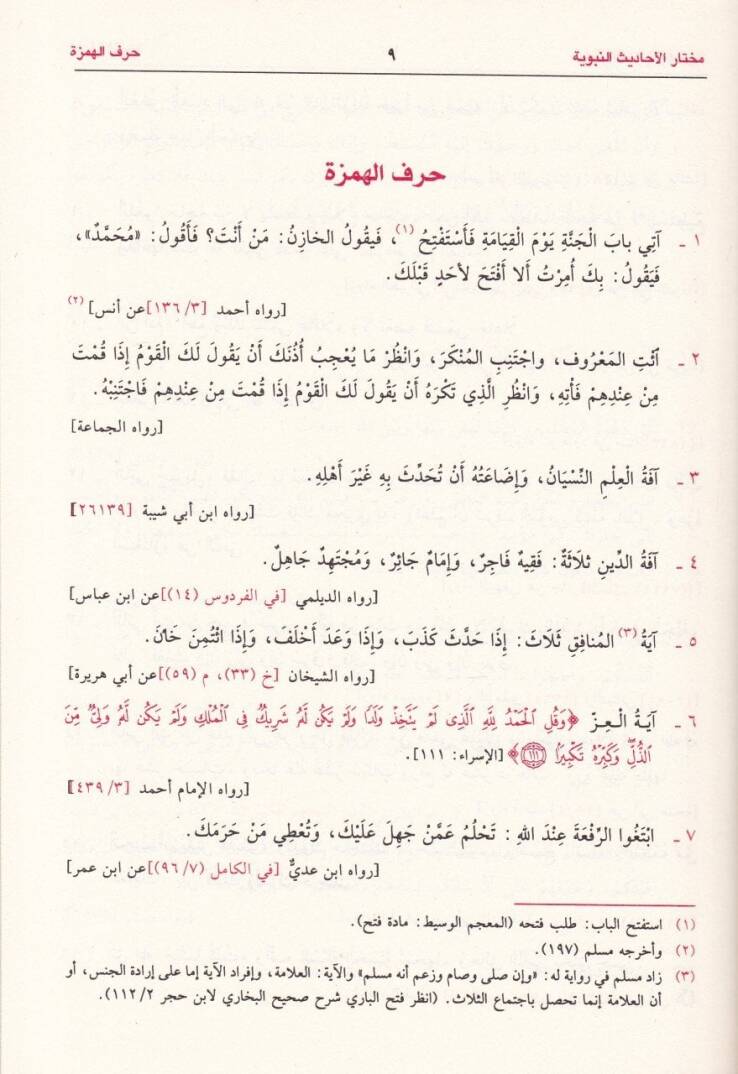 مختار الأحاديث النبوية ٩ حرف الهمزة
حرف الهمزة
١ ـ آتِي بابَ الْجَنَّةِ يَوْمَ الْقِيَامَةِ فَأَسْتَفْتِحُ (١)، فَيقُولُ الخازِنُ: مَنْ أَنْتَ؟ فَأَقُولُ: «مُحَمَّدٌ»،
فَيَقُولُ: بِكَ أُمِرْتُ أَلا أَفْتَحَ لأَحَدٍ قَبْلَكَ.
[رواه أحمد [٣/ ١٣٦]عن أنس] (٢)
٢ ـ ائْتِ المَعْرُوف، واجْتَنِبِ المُنْكَرَ، وَانْظُرْ مَا يُعْجِبُ أُذُنَكَ أَنْ يَقُولَ لَكَ الْقَوْمُ إِذَا قُمْتَ
مِنْ عِنْدِهِمْ فَأْتِهِ، وَانْظُرِ الَّذِي تَكْرَهُ أَنْ يَقُولَ لَكَ الْقَوْمُ إِذَا قُمْتَ مِنْ عِنْدِهِمْ فَاجْتَنِبْهُ.
[رواه الجماعة]
٣ ـ آفَةُ الْعِلْمِ النِّسْيَانُ، وَإِضَاعَتُهُ أَنْ تُحَدِّثَ بِهِ غَيْرَ أَهْلِهِ.
[رواه ابن أبي شيبة [٢٦١٣٩]
٤ ـ آفَةُ الدِّينِ ثلاثَةٌ: فَقِيهٌ فَاجِرٌ، وَإِمَامٌ جَائِرٌ، وَمُجْتَهِدٌ جَاهِلٌ.
[رواه الديلمي [في الفردوس (١٤)]عن ابن عباس]
٥ ـ آيَةُ (٣) المُنافِقِ ثَلاَثَ: إِذَا حَدَّثَ كَذَبَ، وَإِذَا وَعَدَ أَخْلَفَ، وَإِذَا ائْتُمِنَ خَانَ.
[رواه الشيخان [خ (٣٣)، م (٥٩)]عن أبي هريرة]
٦ ـ آيَـةُ الْـعِـزّ ﴿وَقُلِ الْحَمْدُ لِلَّهِ الَّذِى لَمْ يَتَّخِذْ وَلَدًا وَلَمْ يَكُن لَّهُ شَرِيكٌ فِى الْمُلْكِ وَلَمْ يَكُن لَّهُ وَلِىٌّ مِّنَ
الذُّلِّ وَكَبِّرْهُ تَكْبِيرًا ١١١﴾ [الإسراء: ١١١].
[رواه الإمام أحمد [٣/ ٤٣٩]
٧ ـ ابْتَغُوا الرِّفْعَةَ عِنْدَ اللهِ: تَحْلُمُ عَمَّنْ جَهِلَ عَلَيْكَ، وَتُعْطِي مَنْ حَرَمَكَ.
[رواه ابن عديٌّ [في الكامل (٧/ ٩٦)]عن ابن عمر]
(١) استفتح الباب: طلب فتحه (المعجم الوسيط: مادة فتح).
(٢) وأخرجه مسلم (١٩٧).
(٣) زاد مسلم في رواية له: «وإن صلى وصام وزعم أنه مسلم» والآية: العلامة، وإفراد الآية إما على إرادة الجنس، أو
أن العلامة إنما تحصل باجتماع الثلاث. (انظر فتح الباري شرح صحيح البخاري لابن حجر ٢/ ١١٢).